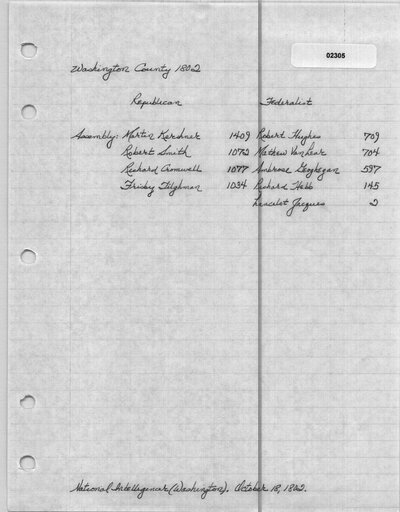 02305
Washington County 1802
Republican Federalist
Assembly: Martin Kershner 1409 Robert Hughes 709
Robert Smith 1072 Mathew Van Lear 704
Richard Cromwell 1077 Ambrose Geoghegan 597
Frisby Tilghman 1034 Richard Hebb 145
Lancelot Jacques 2
National Intelligencer (Washington). October 18, 1802.